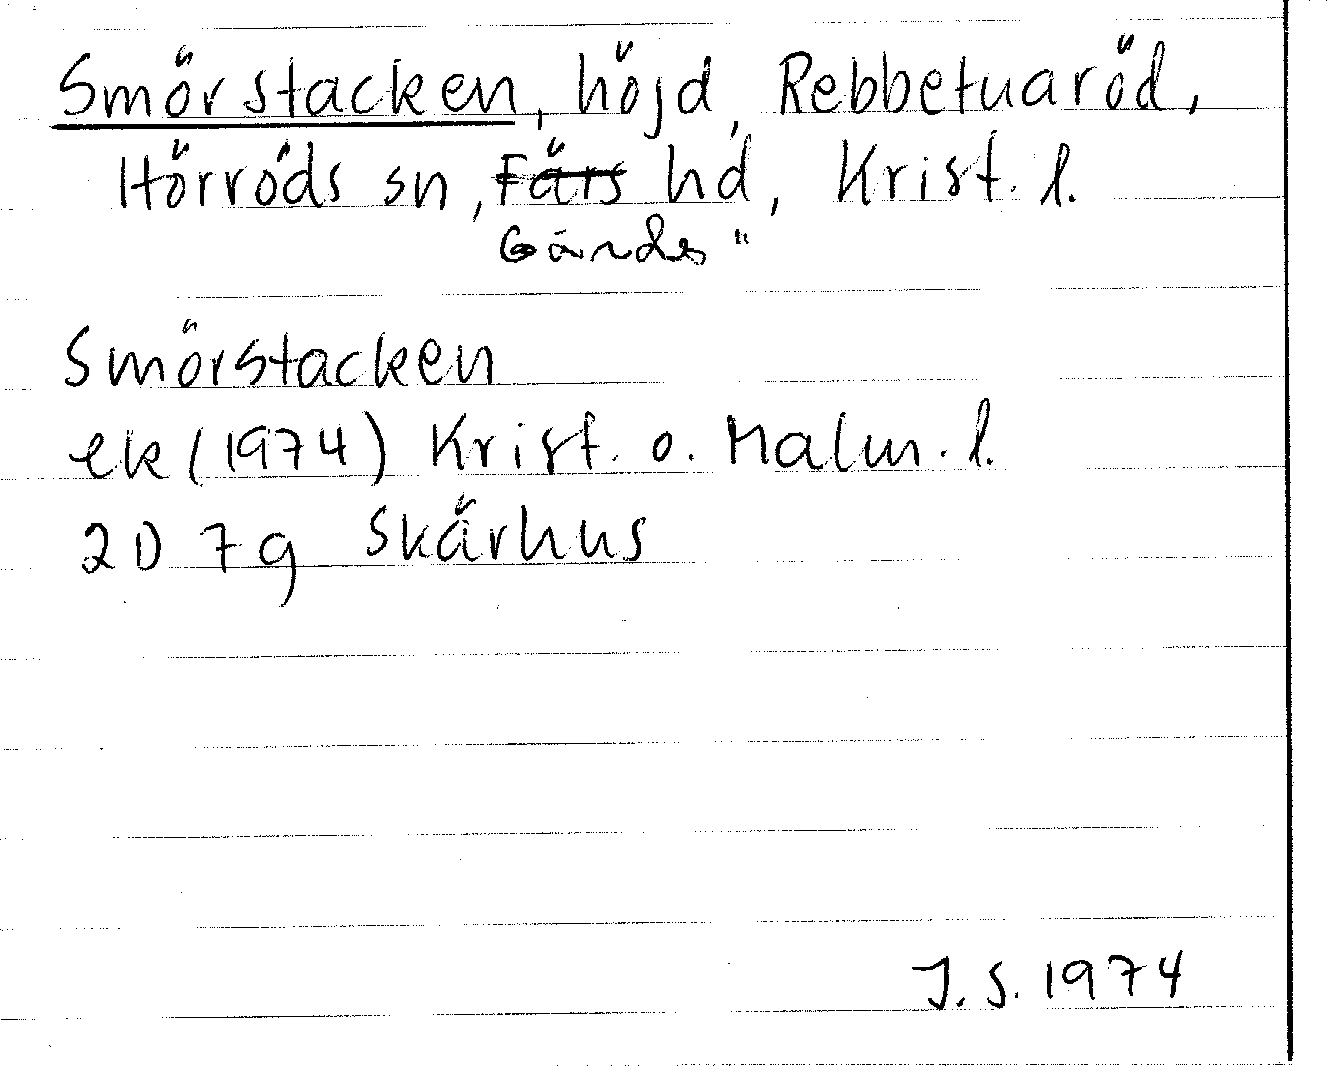 Smörstacken, höjd, Rebbetuaröd,
Hörröds sn, Färs hd, Krist. l.
Gärds "
Smörstacken
ek (1974) Krist. o. Malm. l.
2D 7g Skärhus
J. S. 1974